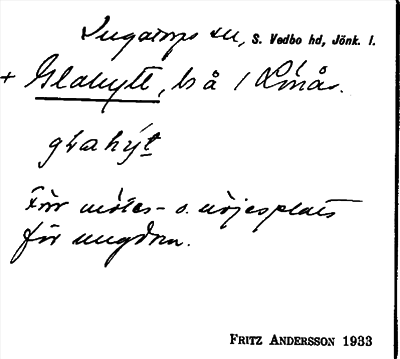 Ingatorps sn, S. Vedbo hd, Jönk. l.
+ Glahytt, bs å 1 Lönås.
glahýt
Förr mötes- o. nöjesplats
för ungdom.
FRITZ ANDERSSON 1933